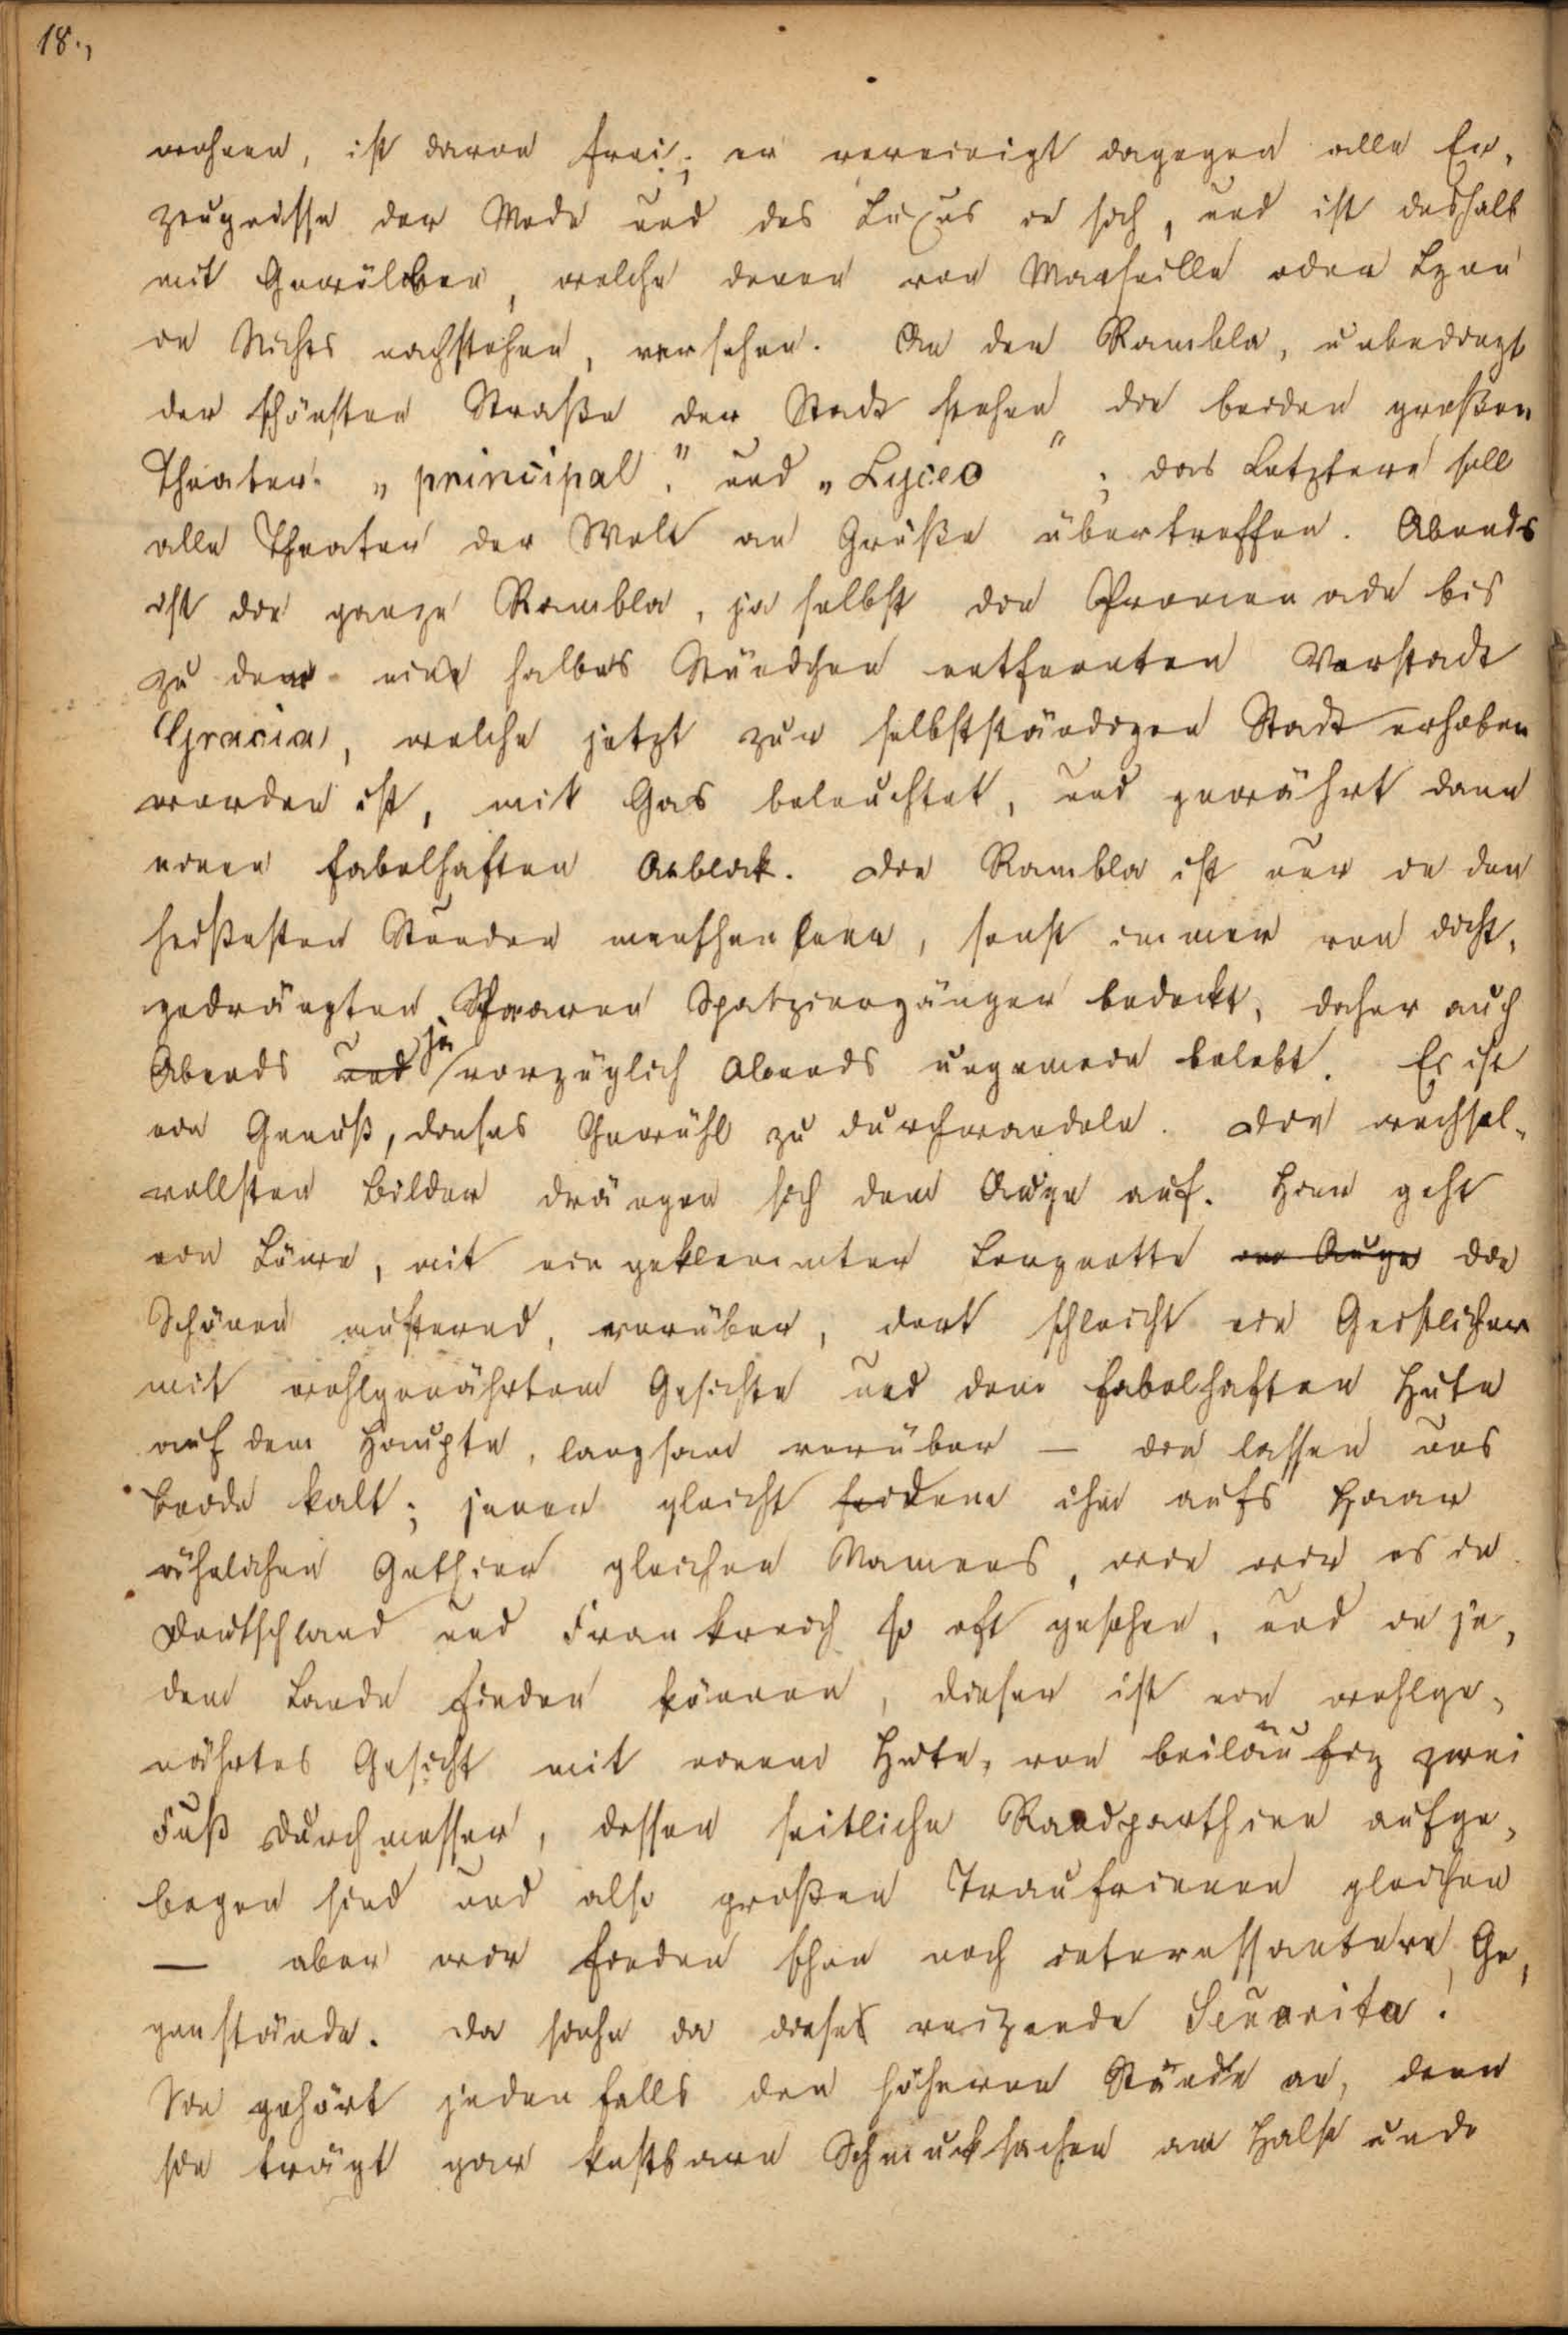 18.,
wohnen, ist davon frei; er vereinigt dagegen alle Er¬
zeugnisse der Mode und des Luxus in sich, und ist deshalb
mit Gewölben, welche denen von Marseille oder Lyon
in Nichts nachstehen, versehen. An der Rambla, unbedingt
der schönsten Straße der Stadt stehen die beiden großen
Theater. „principal." und „Lyceo"; das Letztere soll
alle Theater der Welt an Größe übertreffen. Abends
ist die ganze Rambla, ja selbst die Promenade bis
zu der eine halbes Stündchen entfernten Vorstadt
Gracia, welche jetzt zur selbstständigen Stadt erhoben
worden ist, mit Gas beleuchtet, und gewährt dann
einen fabelhaften Anblick. Die Rambla ist nur in den
heißesten Stunden menschenleer, sonst immer von dicht¬
gedrängten Scharen Spatziergänger bedeckt, daher auch
Abends und ja vorzüglich Abends ungemein belebt. Es ist
ein Genuß, dieses Gewühl zu durchwandeln. Die wechsel¬
vollsten Bilder drängen sich dem Auge auf. Hier geht
ein Löwe, mit eingeklemmter Lorgnette im Auge die
Schönen musternd, vorüber, dort schleicht ein Geistlicher
mit wohlgenährtem Gesichte und dem fabelhaften Hute
auf dem Haupte, langsam vorüber — die lassen uns
Beide kalt; jener gleicht jedem ihm aufs Haar
ähnlichen Gethier gleichen Namens, wie wir es in
Deutschland und Frankreich so oft gesehen, und in je¬
dem Lande finden können, dieser ist ein wohlge¬
nährtes Gesicht mit einem Hute, von beiläufig zwei
Fuß Durchmesser, dessen seitliche Randparthien aufge¬
bogen sind und also großen Traufrinnen gleichen
— aber wir finden schon noch interessantere Ge¬
genstände. Da siehe da dieses reizende Senorita!
Sie gehört jedenfalls den höheren Stände an, denn
sie trägt gar kostbare Schmucksachen am Halse und